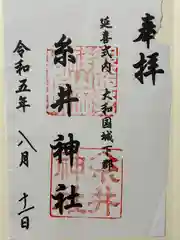 奉拝
延喜式内 大和国城下郡
糸井神社
令和五年八月十一日